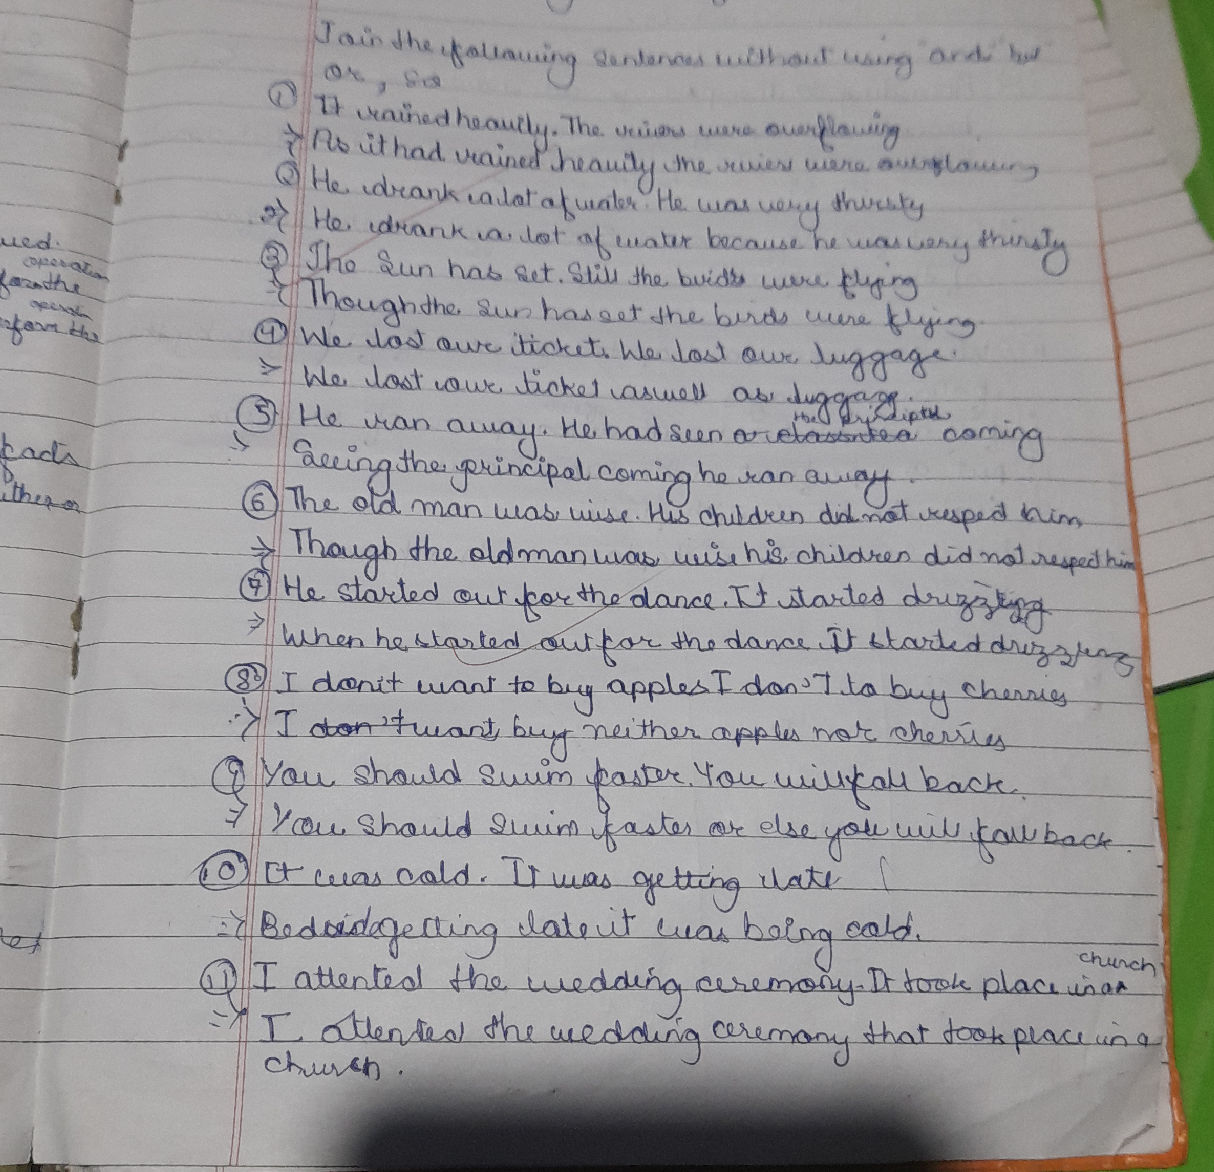 Join the following sentences without using and but
or, so
① It rained heavily. The rivers were overflowing
⇒ As it had rained heavily the rivers were overflowing
② He drank a lot of water. He was very thirsty
⇒ He drank a lot of water because he was very thirsty
③ The Sun has set. Still the buirds were flying
⇒ Though the Sun has set the birds were flying
④ We lost our ticket. We lost our luggage.
⇒ We lost our ticket aswell as luggage.
the principal
⑤ He ran away. He had seen a coming
⇒ Seeing the principal coming he ran away.
⑥ The old man was wise. His children did not respect him
⇒ Though the old man was wise his children did not respect him
⑦ He started out for the dance. It started drizzling
⇒ When he started out for the dance It started drizzling
⑧ I don't want to buy apples I don't to buy cherries
⇒ I don't want buy neither apples nor cherries
⑨ You should swim faster. You will fall back.
⇒ You should swim faster or else you will fall back.
⑩ It was cold. It was getting late
⇒ getting late it was being cold.
church
⑪ I attented the wedding ceremony. It took place in a
⇒ I attented the wedding ceremony that took place in a
church.
ued.
operation
form the
form the
facts
either or